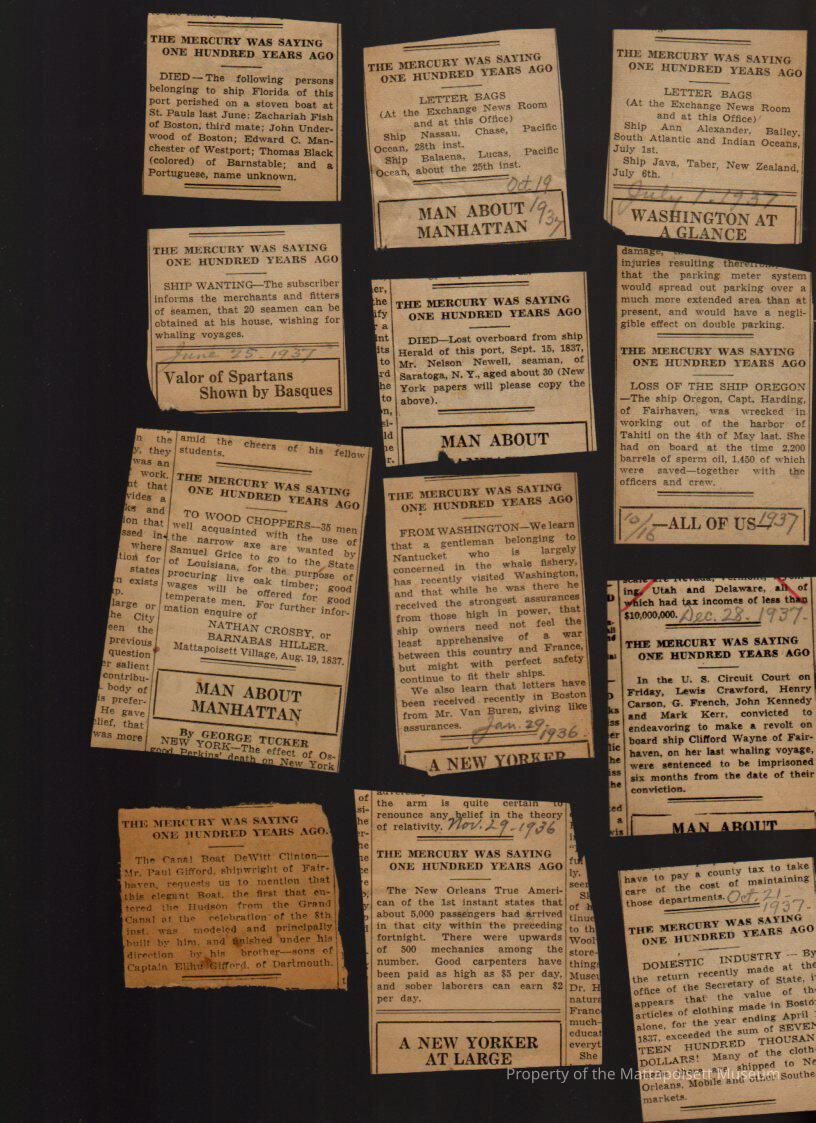 THE MERCURY WAS SAYING
ONE HUNDRED YEARS AGO
DIED—The following persons
belonging to ship Florida of this
port perished on a stoven boat at
St. Pauls last June: Zachariah Fish
of Boston, third mate; John Under-
wood of Boston; Edward C. Man-
chester of Westport; Thomas Black
(colored) of Barnstable; and a
Portuguese, name unknown.
THE MERCURY WAS SAYING
ONE HUNDRED YEARS AGO
SHIP WANTING—The subscriber
informs the merchants and fitters
of seamen, that 20 seamen can be
obtained at his house, wishing for
whaling voyages.
June 25 1937
Valor of Spartans
Shown by Basques
n the
y, they
was an
work.
nt that
vides a
ks and
ion that
ssed in
where
tion for
states
n exists
ip.
large or
he City
een the
previous
question
er salient
contribu-
body of
is prefer-
He gave
lief, that
was more
amid the cheers of his fellow
students.
THE MERCURY WAS SAYING
ONE HUNDRED YEARS AGO
TO WOOD CHOPPERS—35 men
well acquainted with the use of
the narrow axe are wanted by
Samuel Grice to go to the State
of Louisiana, for the purpose of
procuring live oak timber; good
wages will be offered for good
temperate men. For further infor-
mation enquire of
NATHAN CROSBY, or
BARNABAS HILLER.
Mattapoisett Village, Aug. 19, 1837.
MAN ABOUT
MANHATTAN
By GEORGE TUCKER
NEW YORK—The effect of Os-
good Perkins' death on New York
THE MERCURY WAS SAYING
ONE HUNDRED YEARS AGO.
The Canal Boat DeWitt Clinton—
Mr. Paul Gifford, shipwright of Fair-
haven, requests us to mention that
this elegant Boat, the first that en-
tered the Hudson from the Grand
Canal at the celebration of the 8th
inst. was modeled and principally
built by him, and finished under his
direction by his brother—sons of
Captain Elihu Gifford, of Dartmouth.
THE MERCURY WAS SAYING
ONE HUNDRED YEARS AGO
LETTER BAGS
(At the Exchange News Room
and at this Office)
Ship Nassau, Chase, Pacific
Ocean, 28th inst.
Ship Balaena, Lucas, Pacific
Ocean, about the 25th inst.
Oct. 19
1937
MAN ABOUT
MANHATTAN
THE MERCURY WAS SAYING
ONE HUNDRED YEARS AGO
DIED—Lost overboard from ship
Herald of this port, Sept. 15, 1837,
Mr. Nelson Newell, seaman, of
Saratoga, N. Y., aged about 30 (New
York papers will please copy the
above).
MAN ABOUT
THE MERCURY WAS SAYING
ONE HUNDRED YEARS AGO
FROM WASHINGTON—We learn
that a gentleman belonging to
Nantucket who is largely
concerned in the whale fishery,
has recently visited Washington,
and that while he was there he
received the strongest assurances
from those high in power, that
ship owners need not feel the
least apprehensive of a war
between this country and France,
but might with perfect safety
continue to fit their ships.
We also learn that letters have
been received recently in Boston
from Mr. Van Buren, giving like
assurances.
Jan. 29, 1936
A NEW YORKER
the arm is quite certain to
renounce any belief in the theory
of relativity. Nov. 29-1936
THE MERCURY WAS SAYING
ONE HUNDRED YEARS AGO
The New Orleans True Ameri-
can of the 1st instant states that
about 5,000 passengers had arrived
in that city within the preceding
fortnight. There were upwards
of 500 mechanics among the
number. Good carpenters have
been paid as high as $5 per day,
and sober laborers can earn $2
per day.
A NEW YORKER
AT LARGE
THE MERCURY WAS SAYING
ONE HUNDRED YEARS AGO
LETTER BAGS
(At the Exchange News Room
and at this Office)
Ship Ann Alexander, Bailey,
South Atlantic and Indian Oceans,
July 1st.
Ship Java, Taber, New Zealand,
July 6th.
July 1-1937
WASHINGTON AT
A GLANCE
damage,
injuries resulting therefrom
that the parking meter system
would spread out parking over a
much more extended area than at
present, and would have a negli-
gible effect on double parking.
THE MERCURY WAS SAYING
ONE HUNDRED YEARS AGO
LOSS OF THE SHIP OREGON
—The ship Oregon, Capt. Harding,
of Fairhaven, was wrecked in
working out of the harbor of
Tahiti on the 4th of May last. She
had on board at the time 2,200
barrels of sperm oil, 1,450 of which
were saved—together with the
officers and crew.
10/16 —ALL OF US— 1937
ing, Utah and Delaware, all of
which had tax incomes of less than
$10,000,000. Dec. 28. 1937.
THE MERCURY WAS SAYING
ONE HUNDRED YEARS AGO
In the U. S. Circuit Court on
Friday, Lewis Crawford, Henry
Carson, G. French, John Kennedy
and Mark Kerr, convicted to
endeavoring to make a revolt on
board ship Clifford Wayne of Fair-
haven, on her last whaling voyage,
were sentenced to be imprisoned
six months from the date of their
conviction.
MAN ABOUT
have to pay a county tax to take
care of the cost of maintaining
those departments. Oct. 21-
1937-
THE MERCURY WAS SAYING
ONE HUNDRED YEARS AGO
DOMESTIC INDUSTRY — By
the return recently made at the
office of the Secretary of State, i
appears that the value of the
articles of clothing made in Bosto
alone, for the year ending April
1837, exceeded the sum of SEVEN
TEEN HUNDRED THOUSAN
DOLLARS! Many of the cloth
shipped to Ne
Orleans, Mobile and other Southe
markets.
Property of the Mattapoisett Museum